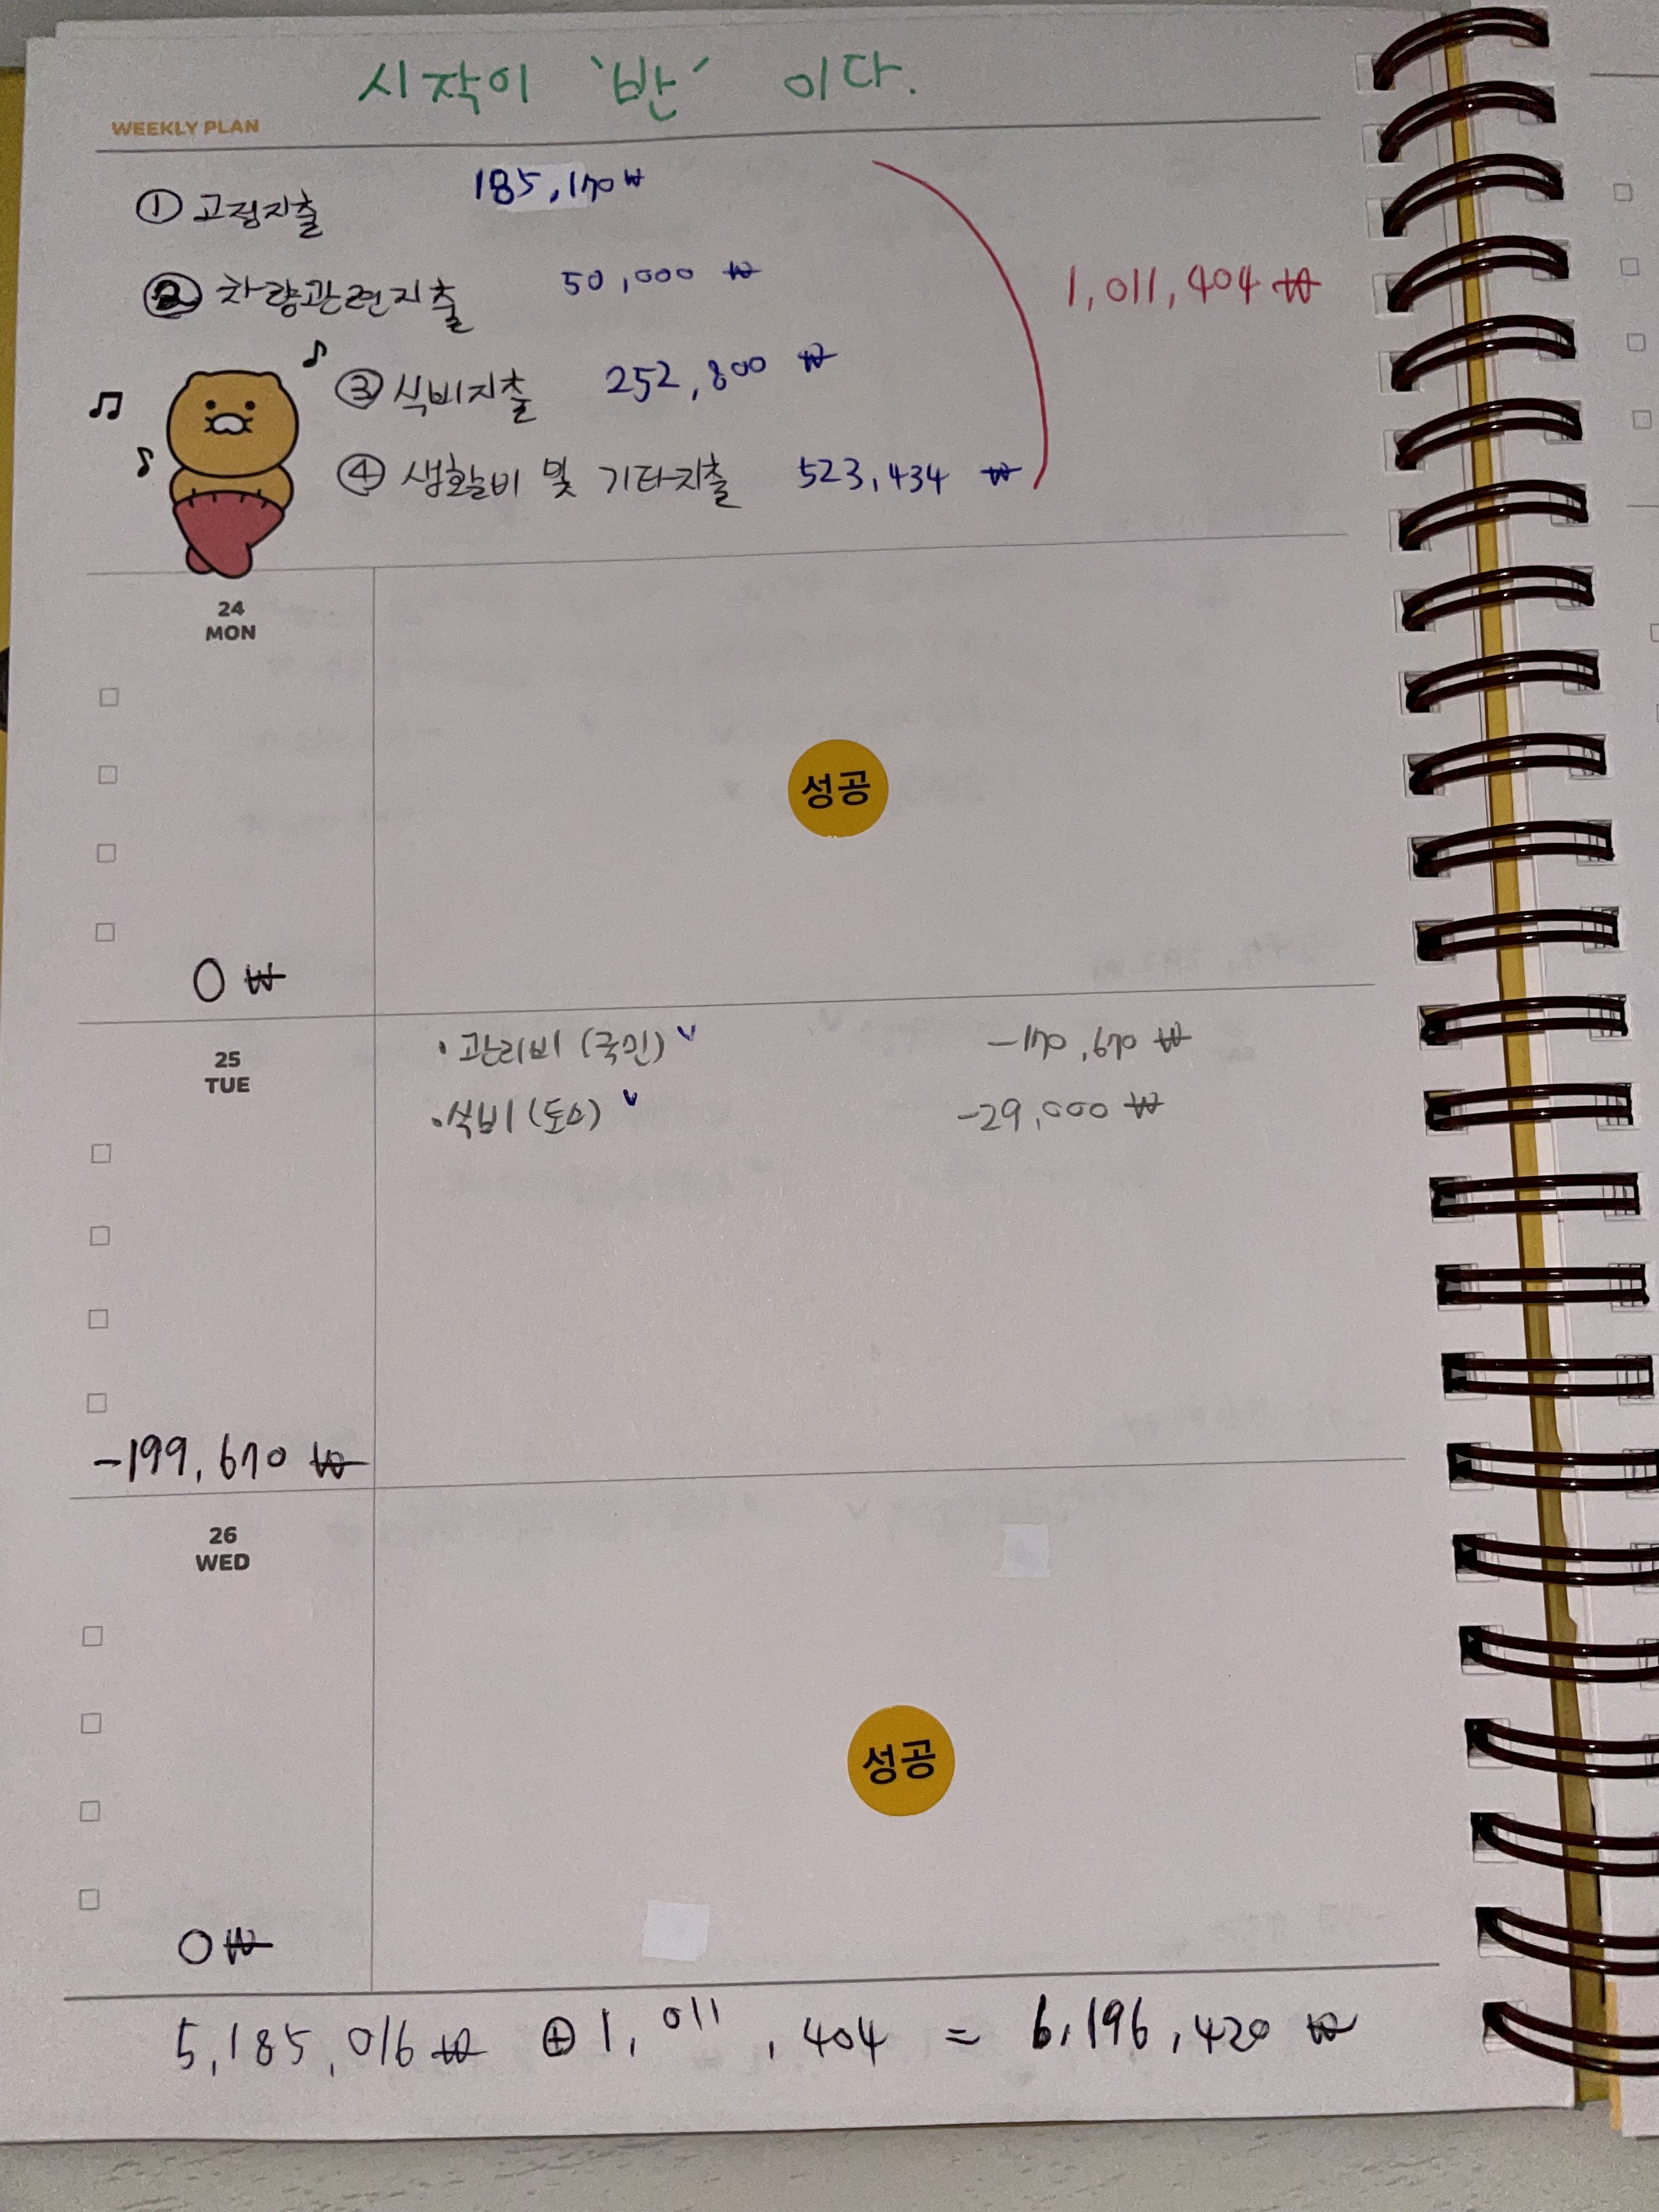 시작이 '반' 이다.
WEEKLY PLAN
① 고정지출 185,170₩
② 차량관련지출 50,000 ₩
③ 식비지출 252,800 ₩
④ 생활비 및 기타지출 523,434 ₩
1,011,404 ₩
24
MON
성공
0 ₩
25
TUE
• 관리비 (국민) v -170,670 ₩
• 식비 (토스) v -29,000 ₩
-199,670 ₩
26
WED
성공
0 ₩
5,185,016 ₩ ⊕ 1,011,404 = 6,196,420 ₩